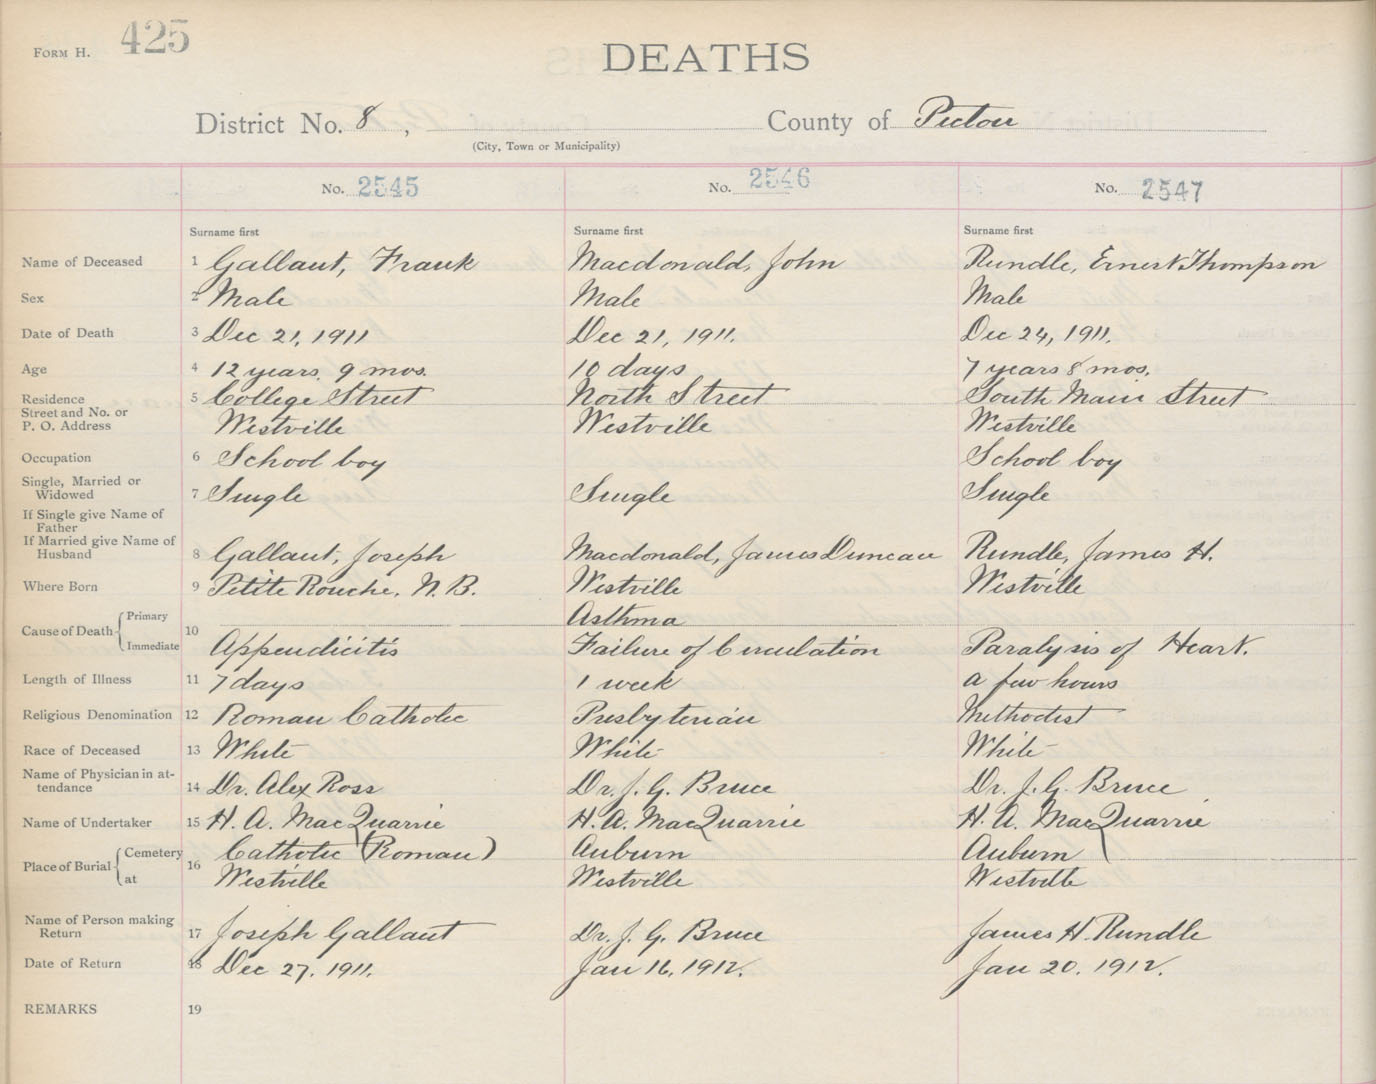 FORM H. 425
DEATHS
District No. 8, County of Pictou
(City, Town or Municipality)
No. 2545 No. 2546 No. 2547
Surname first Surname first Surname first
Name of Deceased 1 Gallant, Frank Macdonald, John Rundle, Ernest Thompson
Sex 2 Male Male Male
Date of Death 3 Dec 21, 1911 Dec 21, 1911. Dec 24, 1911.
Age 4 12 years, 9 mos. 10 days 7 years 8 mos.
Residence 5 College Street North Street South Main Street
Street and No. or
P. O. Address Westville Westville Westville
Occupation 6 School boy School boy
Single, Married or
Widowed 7 Single Single Single
If Single give Name of
Father
If Married give Name of
Husband 8 Gallant, Joseph Macdonald, James Duncan Rundle, James H.
Where Born 9 Petite Rouche, N. B. Westville Westville
Cause of Death Primary 10 Asthma
Immediate Appendicitis Failure of Circulation Paralysis of Heart.
Length of Illness 11 7 days 1 week a few hours
Religious Denomination 12 Roman Catholic Presbyterian Methodist
Race of Deceased 13 White White White
Name of Physician in at-
tendance 14 Dr. Alex Ross Dr. J. G. Bruce Dr. J. G. Bruce
Name of Undertaker 15 H. A. MacQuarrie H. A. MacQuarrie H. A. MacQuarrie
Place of Burial Cemetery 16 Catholic (Roman) Auburn Auburn
at Westville Westville Westville
Name of Person making
Return 17 Joseph Gallant Dr. J. G. Bruce James H. Rundle
Date of Return 18 Dec 27, 1911. Jan 16, 1912. Jan 20, 1912.
REMARKS 19